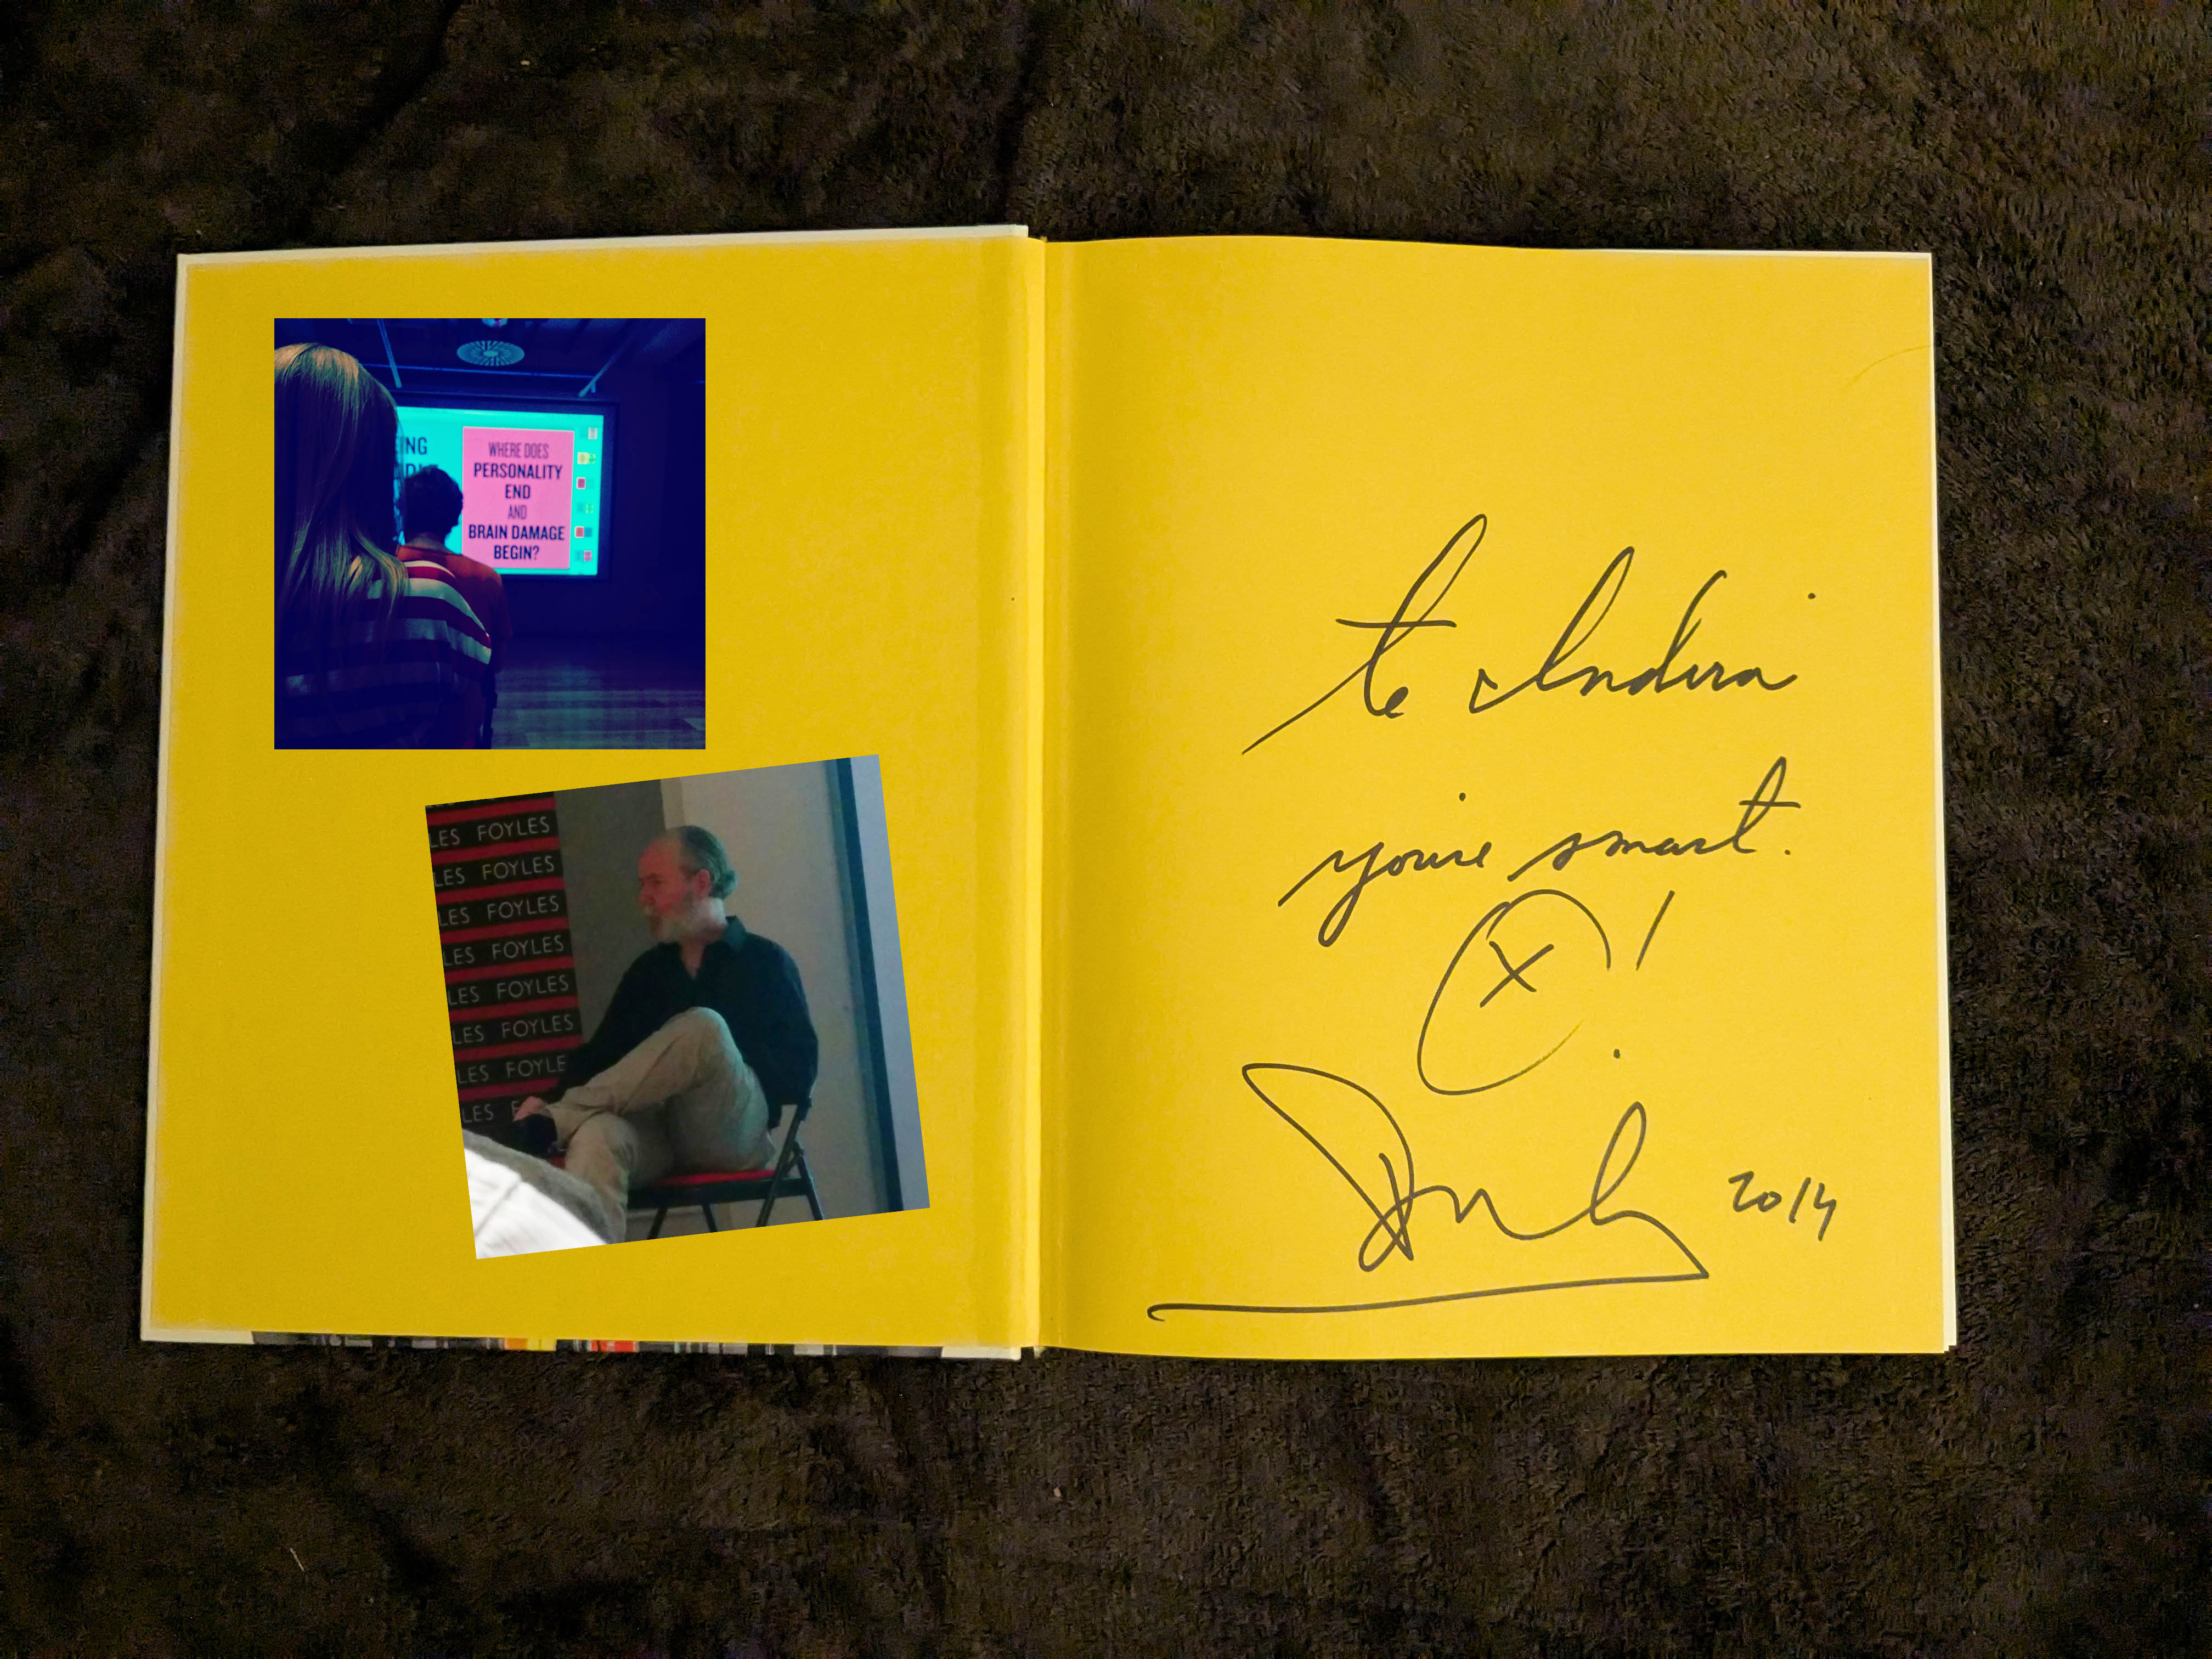 EING
WHERE DOES
PERSONALITY
END
AND
BRAIN DAMAGE
BEGIN?
LES FOYLES
LES FOYLES
LES FOYLES
LES FOYLES
LES FOYLES
LES FOYLES
LES FOYLE
LES F
to Indira
you're smart.
X !
2014